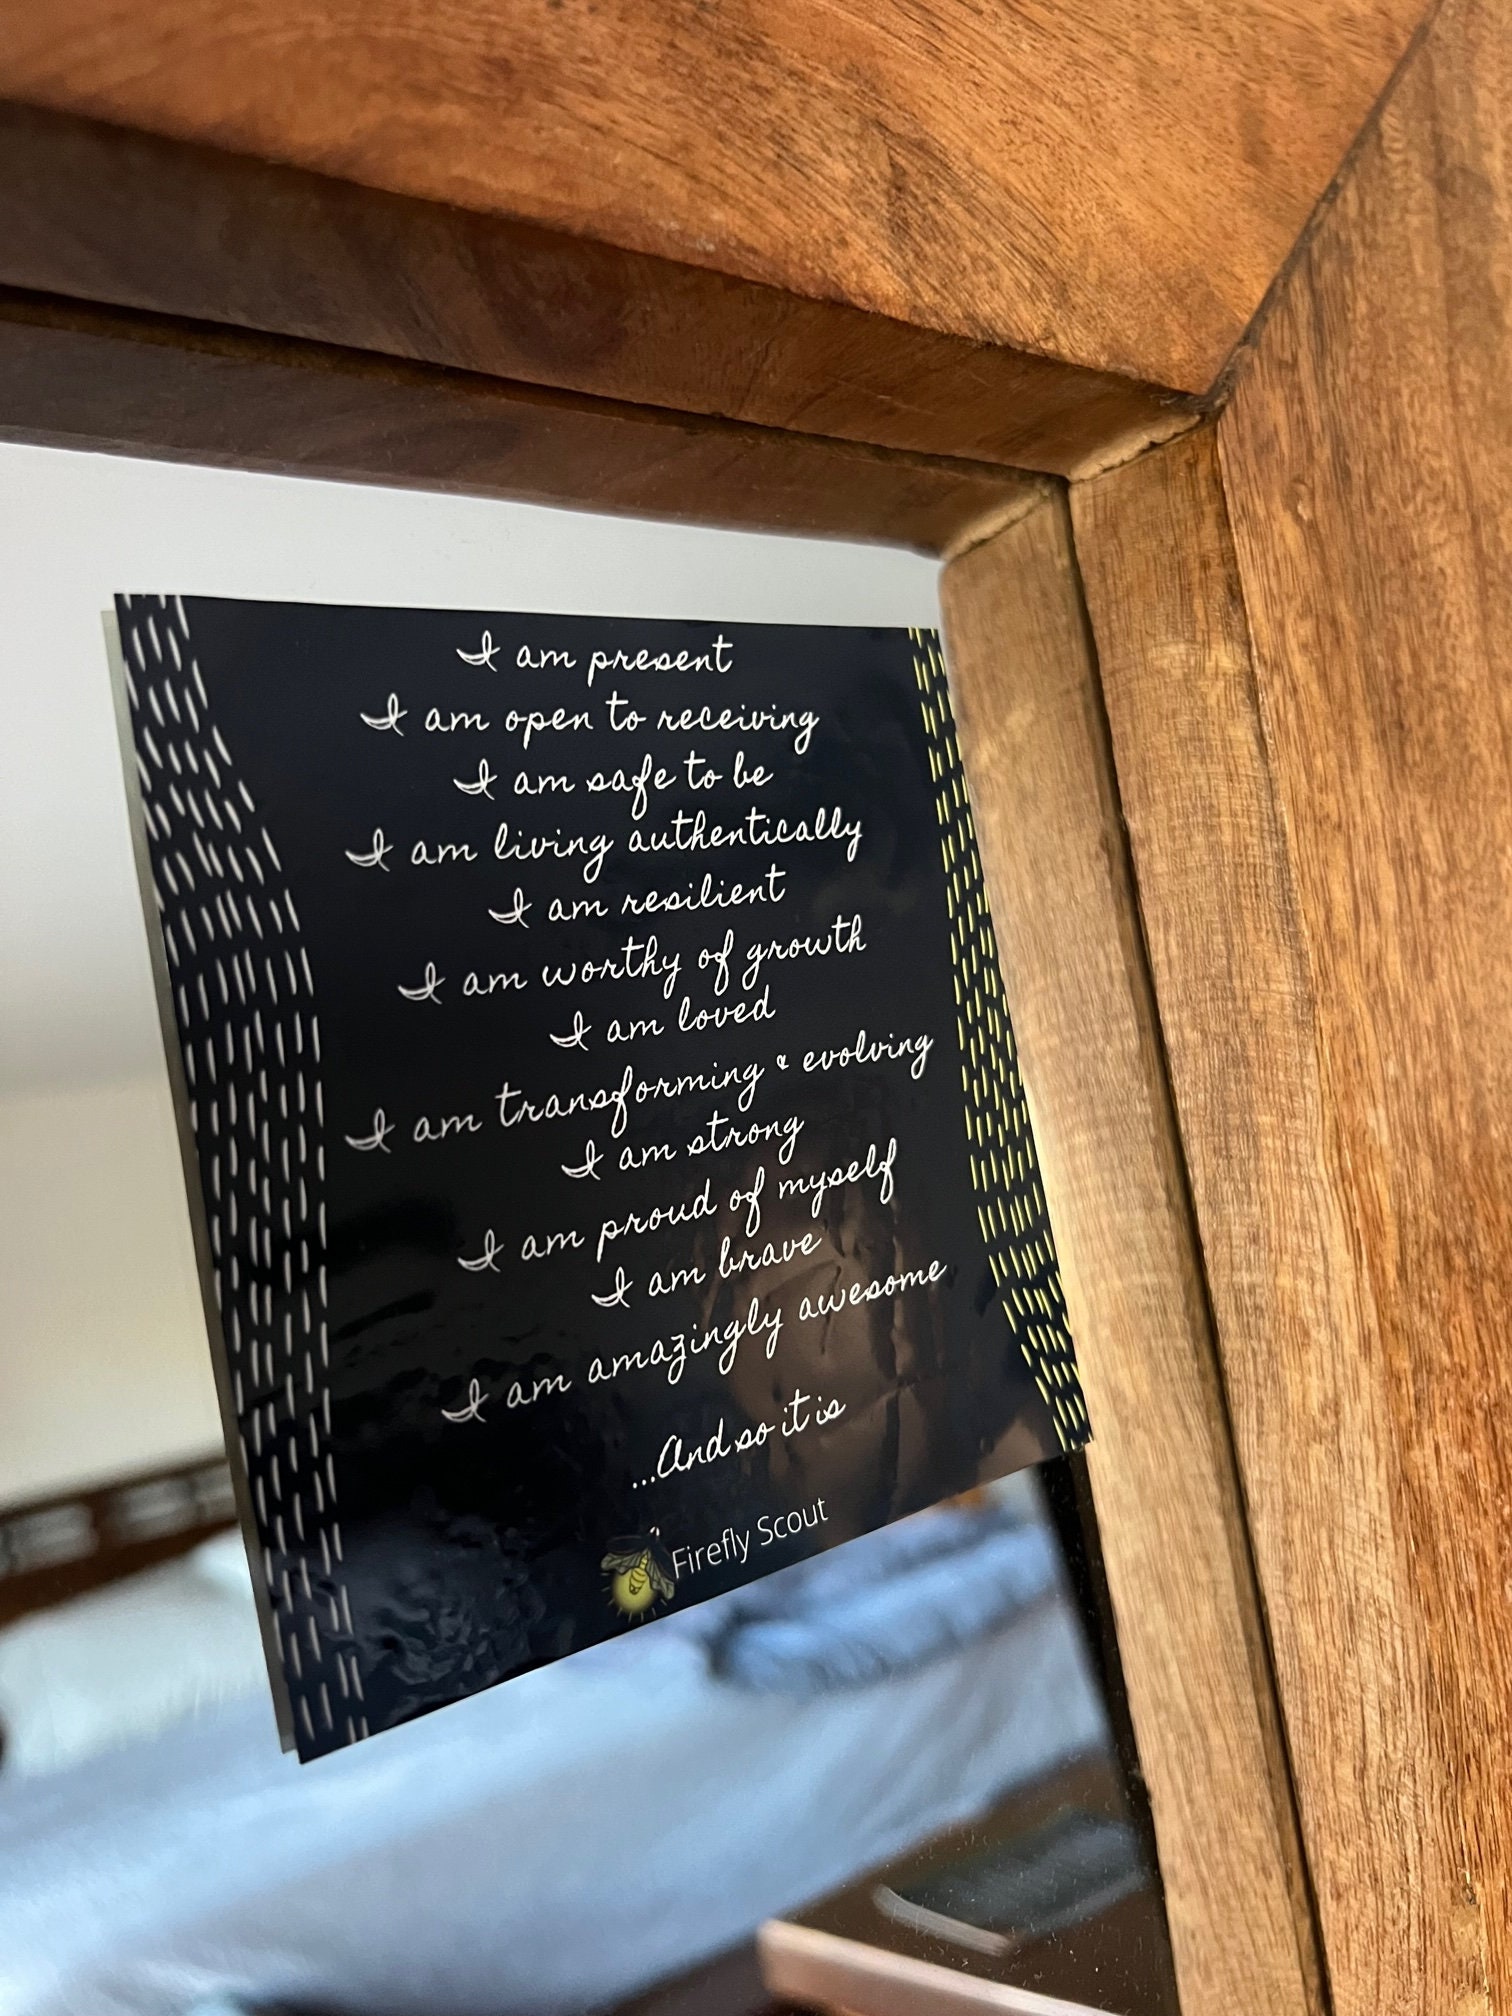 I am present
I am open to receiving
I am safe to be
I am living authentically
I am resilient
I am worthy of growth
I am loved
I am transforming & evolving
I am strong
I am proud of myself
I am brave
I am amazingly awesome
...And so it is
Firefly Scout